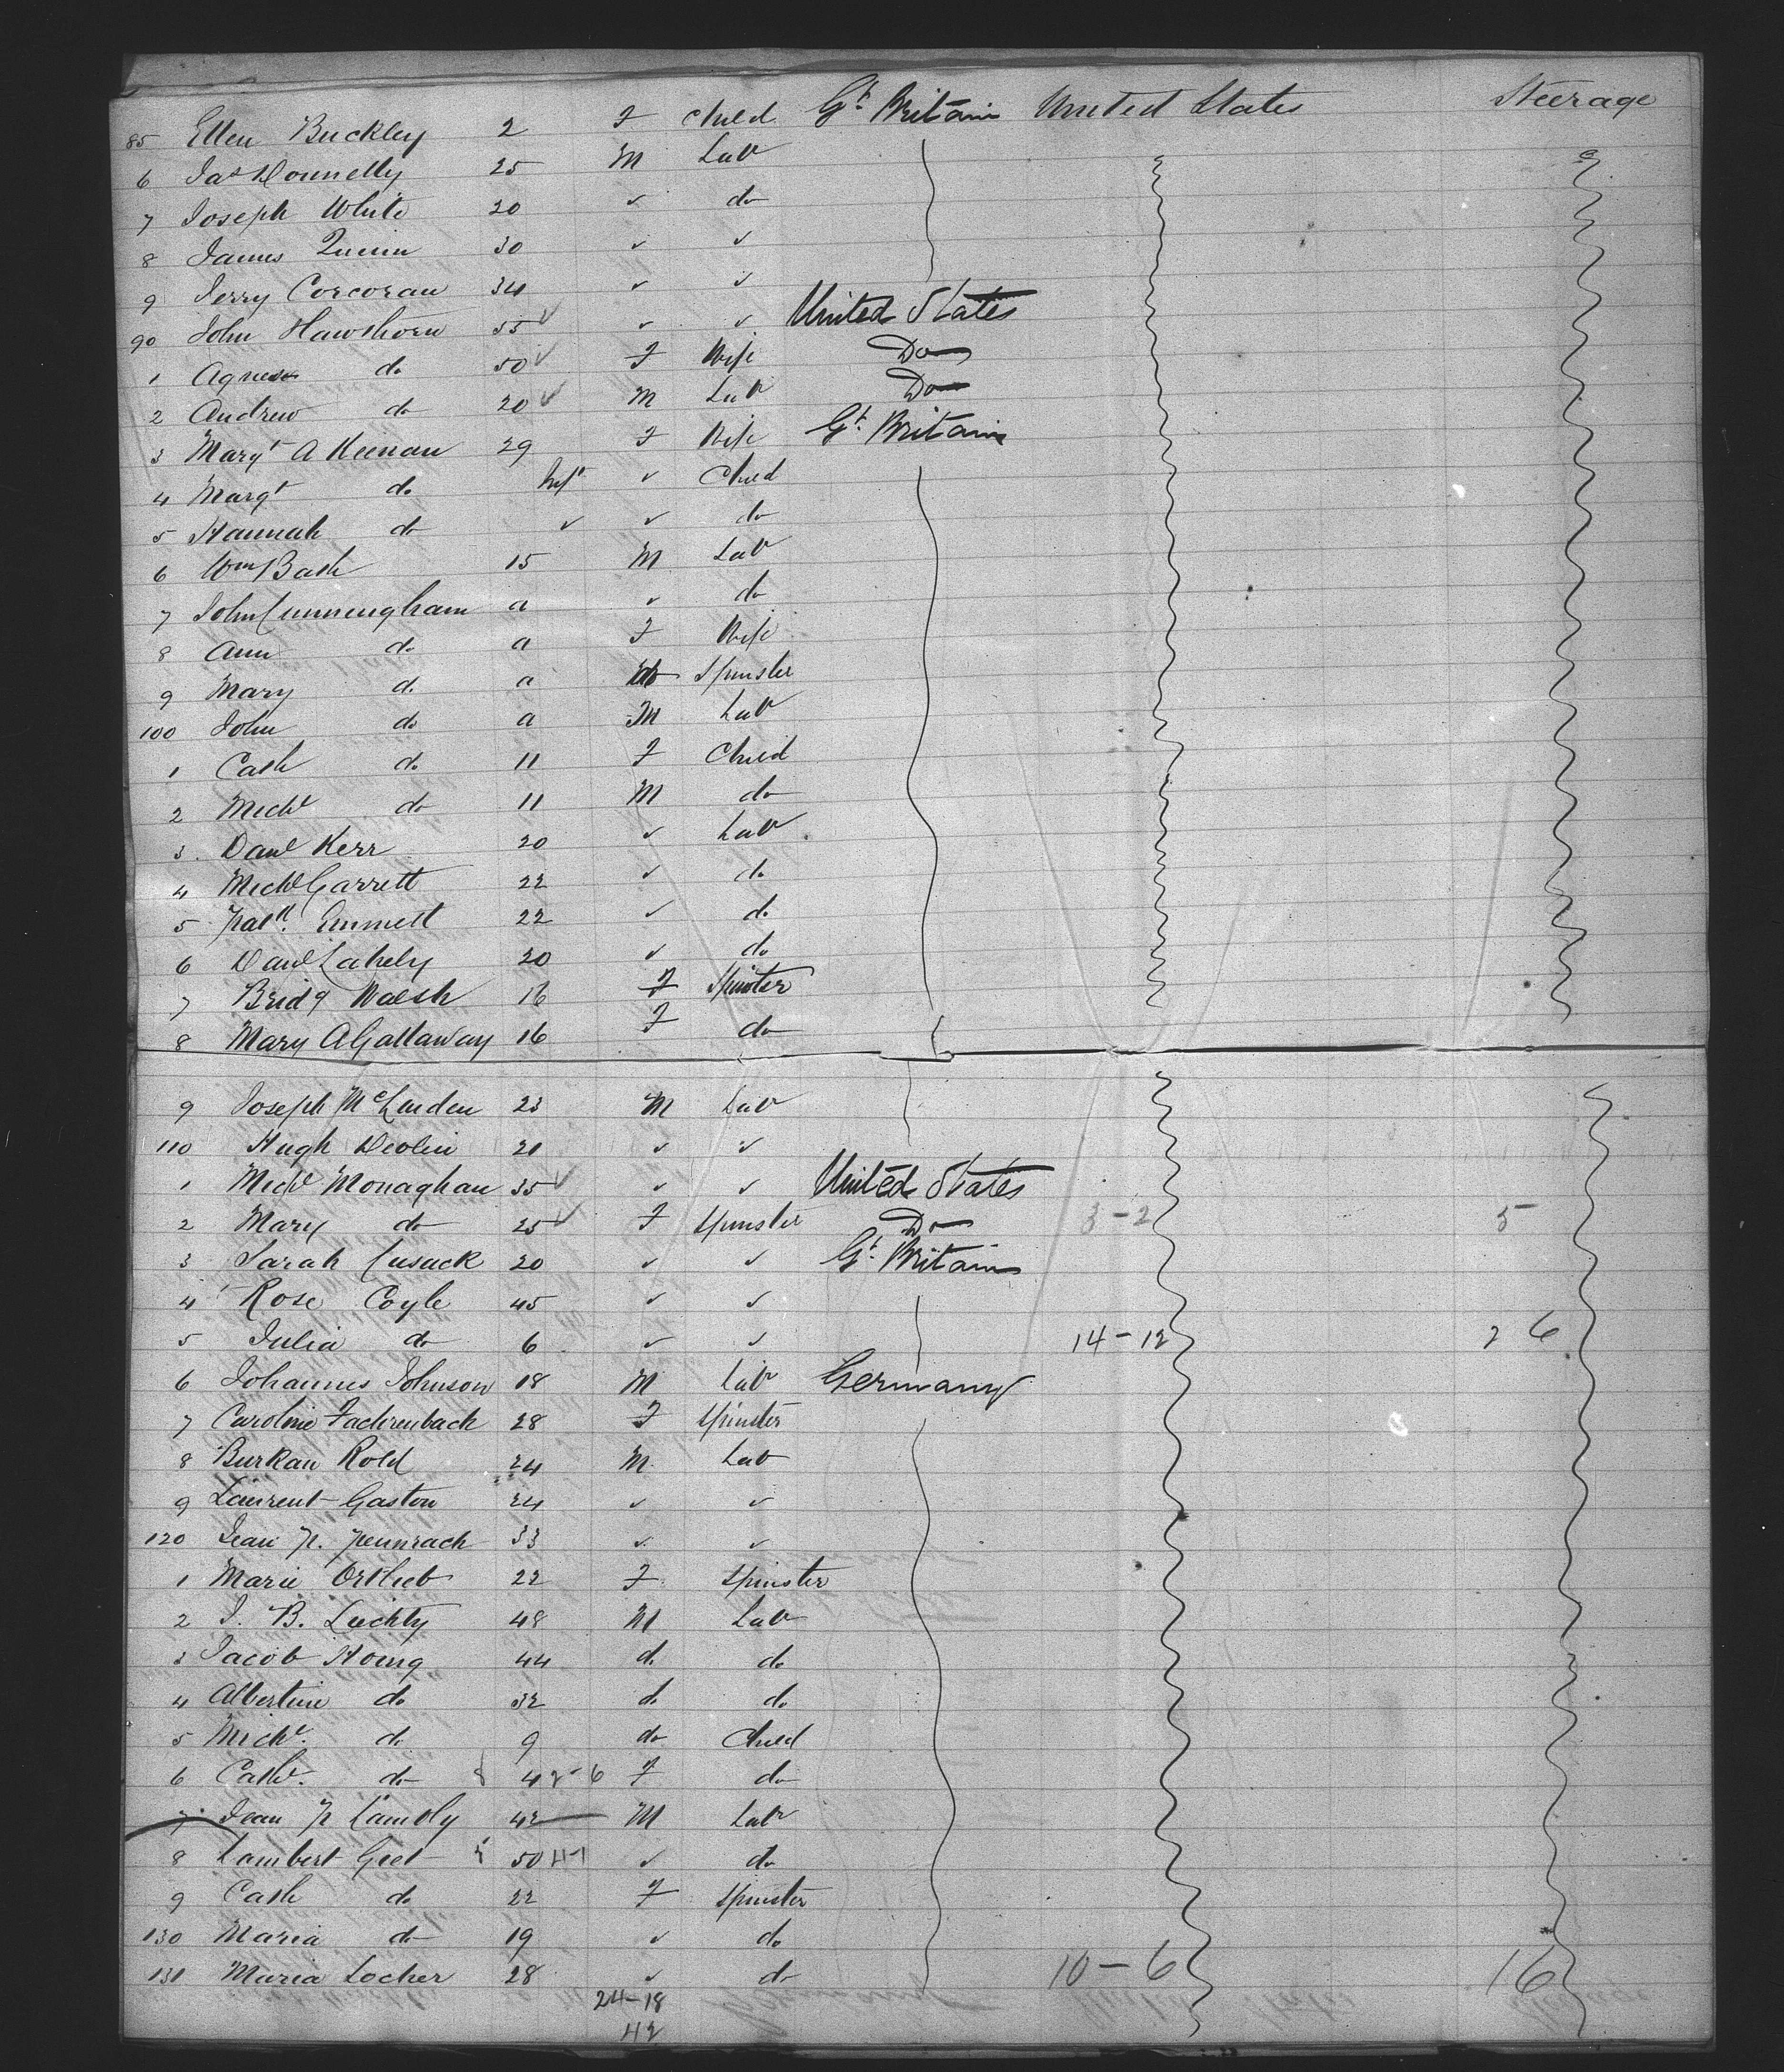 85 Ellen Buckley 2 F Child Gt. Britain United States Steerage
6 Jas Donnelly 25 M Lab
7 Joseph White 20 ✓ do
8 James Quinn 30 ✓ ✓
9 Jerry Corcoran 34 ✓ ✓
90 John Hawthorn 55 ✓ ✓ ✓ United States
1 Agness do 50 ✓ F Wife Do
2 Andrew do 20 ✓ M Lab Do
3 Margt A Keenan 29 F Wife Gt. Britain
4 Margt do Inft ✓ Child
5 Hannah do ✓ ✓ do
6 Wm Bash 15 M Lab
7 John Cunningham a ✓ do
8 Ann do a F Wife
9 Mary do a do Spinster
100 John do a M Lab
1 Cath do 11 F Child
2 Michl do 11 M do
3 Danl Kerr 20 ✓ Lab
4 Michl Garrett 22 ✓ do
5 Patk. Emmett 22 ✓ do
6 Danl Lahely 20 ✓ do
7 Bridg Walsh 16 F Spinster
8 Mary A Gallaway 16 F do
9 Joseph McLinden 23 M Lab
110 Hugh Devlin 21 ✓ ✓
1 Michl Monaghan 35 ✓ ✓ ✓ United States
2 Mary do 25 ✓ F Spinster Do 3-2 5
3 Sarah Cusack 20 ✓ ✓ Gt. Britain
4 Rose Coyle 45 ✓ ✓
5 Julia do 6 ✓ ✓ 14-12 26
6 Johannes Johnson 18 M Lab Germany
7 Caroline Fachrenbach 28 F Spinster
8 Burkan Rold 24 M Lab
9 Laurent Gaston 24 ✓ ✓
120 Jean P. Pennrach 33 ✓ ✓
1 Marie Ortlieb 22 F Spinster
2 J. B. Luchty 48 M Lab
3 Jacob Honig 44 do do
4 Albertine do 32 do do
5 Michl. do 9 do Child
6 Cath. do 4 2-6 F do
7 Jean P Kambly 42 M Lab
8 Lambert Geet 50 4-1 ✓ do
9 Cath do 22 F Spinster
130 Maria do 19 ✓ do
131 Maria Locher 28 ✓ do 10-6 16
24-18
42